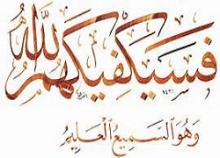 فَسَيَكْفِيكَهُمُ اللَّهُ
وَهُوَ السَّمِيعُ الْعَلِيمُ